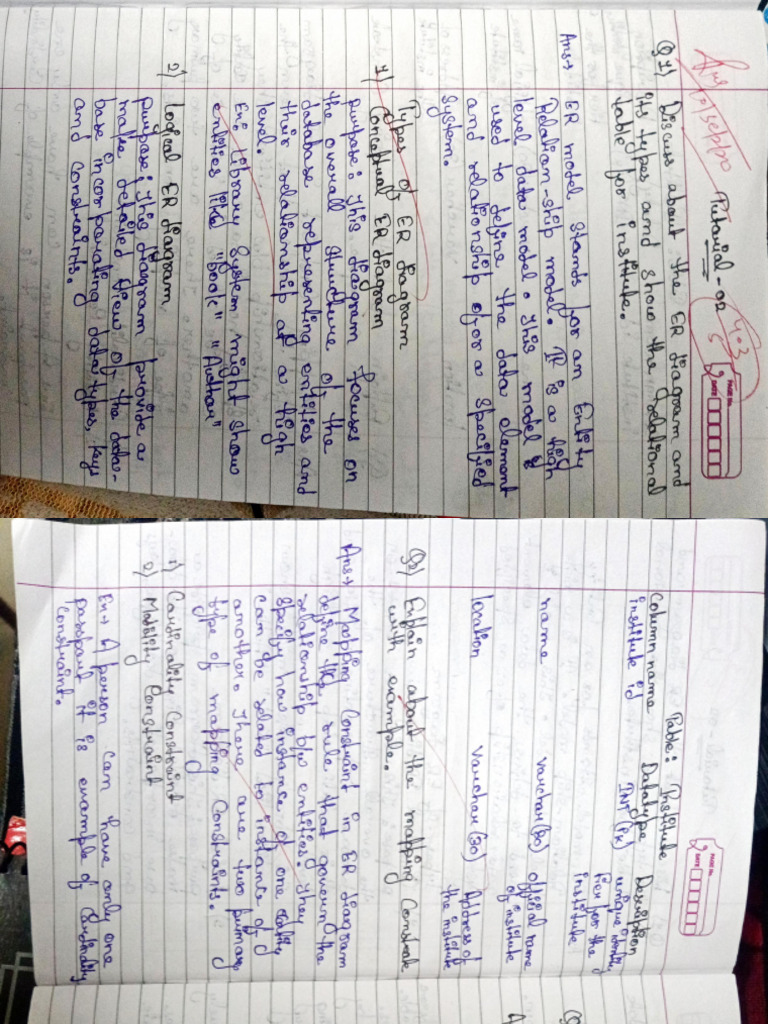 Tutorial - 02
4.3
5
PAGE No.
DATE
Q1) Discuss about the ER diagram and
its types and show the relational
table for institute.
Ans→ ER model stands for an Entity
Relation-ship model. It is a high
level data model. This model is
used to define the data element
and relationship of for a specified
system.
Types of ER diagram
1) Conceptual ER diagram
purpose: This diagram focuses on
the overall structure of the
database representing entities and
their relationship at a high
level.
En: Library System might show
entities like "Book" "Author"
2) logical ER diagram
purpose: This diagram provide a
more detailed view of the data-
base incorporating data types, keys
and constraints.
PAGE No.
DATE
Table: Institute
Column name Datatype Description
institute id INT (PK) unique
for the
institute
name varchar(50) official name
of institute
location varchar(30) Address of
the institute
Q2) Explain about the mapping Constraint
with example.
Ans→ Mapping Constraint in ER diagram
define the rule that govern the
relationship b/w entities. They
specify how instance of one entity
can be related to instance of
another. There are two primary
type of mapping Constraints.
1) Cardinality Constraint
2) Constraint
En→ A person can have only one
passport it is example of Cardinality
Constraint.